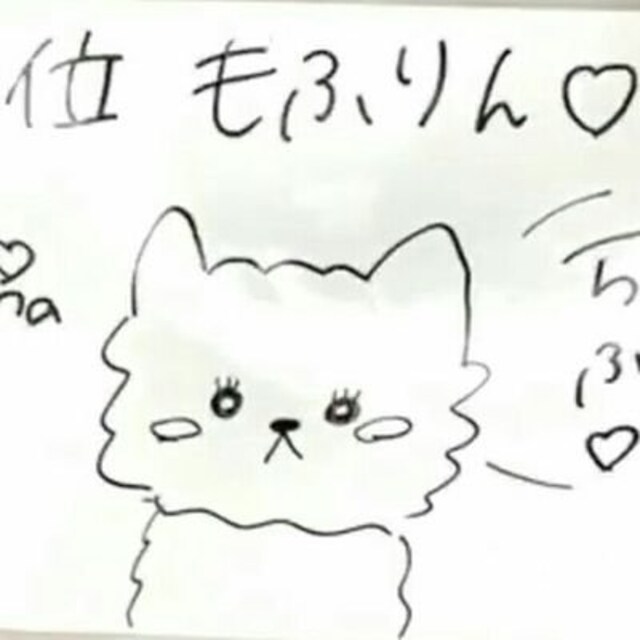 位 もふりん♡
♡
na
ふ
♡